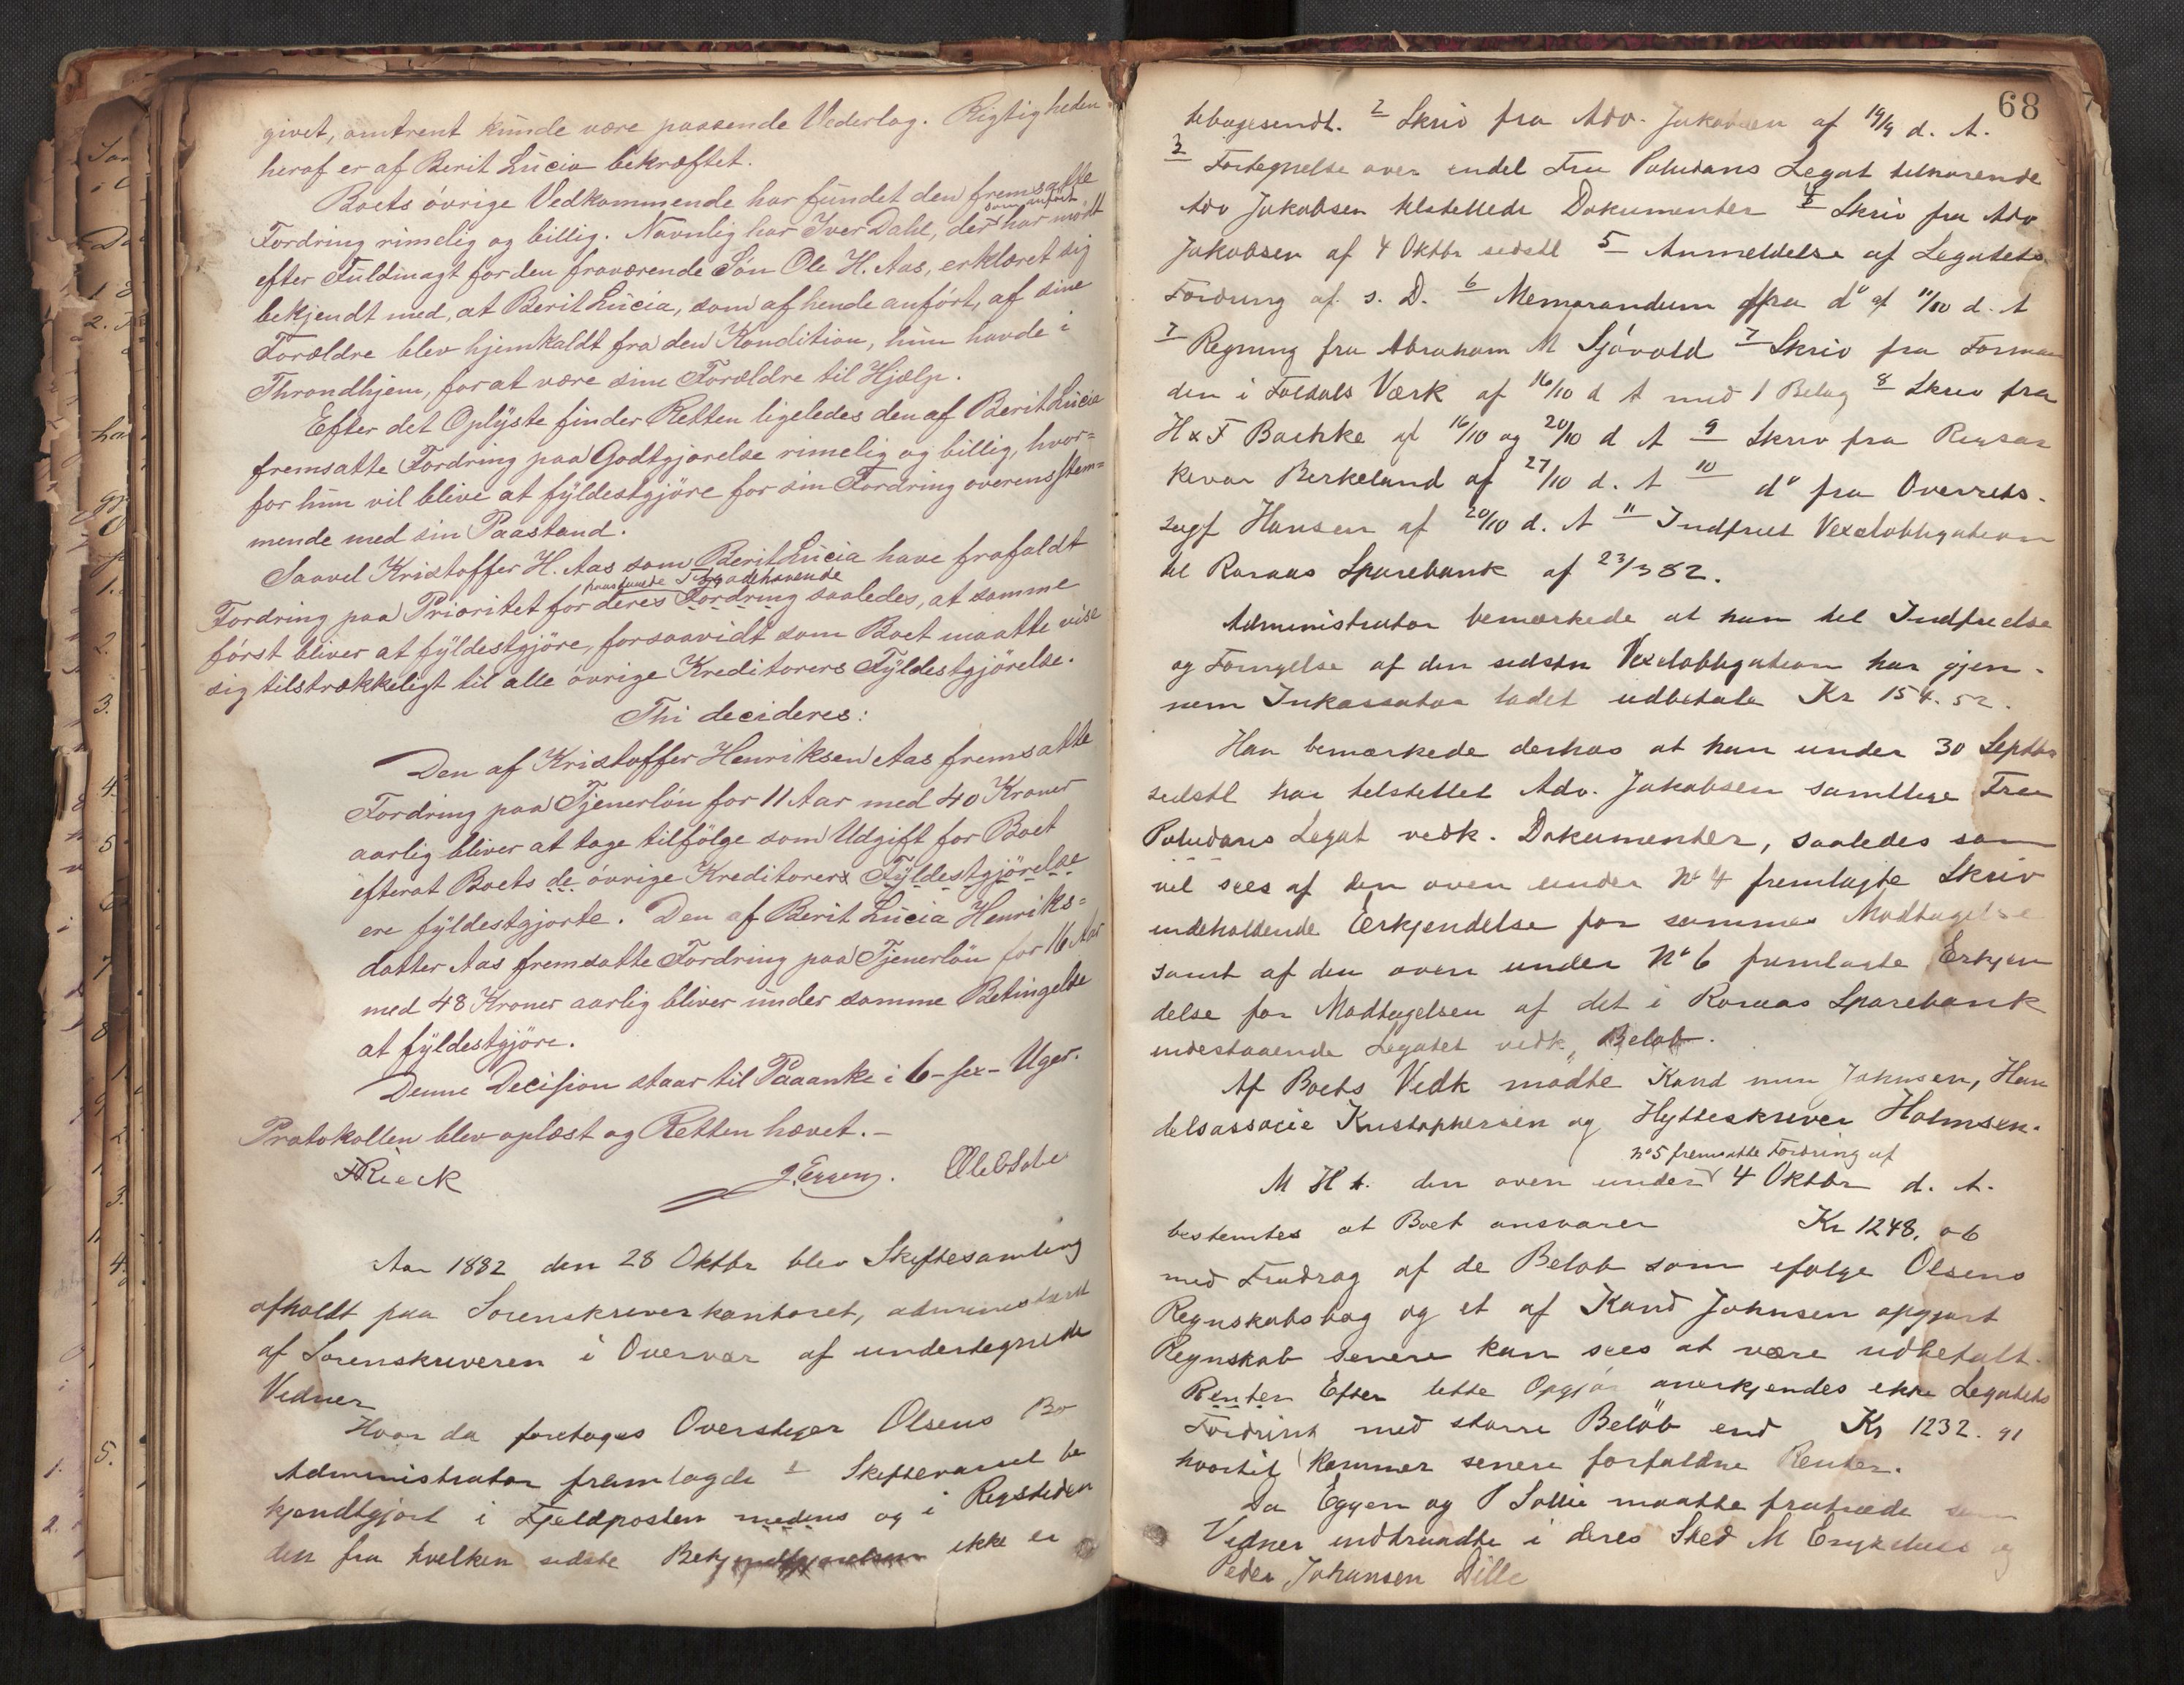 givet, omtrent kunde være passende Vederlag. Rigtigheden
heraf er af Berit Lucia bekræftet.
Boets övrige Vedkommende har fundet den fremsatte
Fordring rimelig og billig. Navnlig har Iver Dahl, der som anfört har mödt
efter Fuldmagt for den fraværende Sön Ole H. Aas, erklæret sig
bekjendt med, at Berit Lucia, som af hende anfört, af sine
Forældre blev hjemkaldt fra den Kondition, hun havde i
Throndhjem, for at være sine Forældre til Hjælp.
Efter det Oplyste finder Retten ligeledes den af Berit Lucia
fremsatte Fordring paa Godtgjörelse rimelig og billig, hvor=
for hun vil blive at fyldestgjöre for sin Fordring overensstem=
mende med sin Paastand.
Saavel Kristoffer H. Aas som Berit Lucia have frafaldt
paastaaede Tilgodehavende
Fordring paa Prioritet for deres Fordring saaledes, at samme
först bliver at fyldestgjöre, forsaavidt som Boet maatte vise
sig tilstrækkeligt til alle övrige Kreditorers Fyldestgjörelse.
Thi decideres:
Den af Kristoffer Henriksen Aas fremsatte
Fordring paa Tjenerlön for 11 Aar med 40 Kroner
aarlig bliver at tage tilfölge som Udgift for Boet
efterat Boets de övrige Kreditorers Fyldestgjörelse
ere fyldestgjorte. Den af Berit Lucia Henriks=
datter Aas fremsatte Fordring paa Tjenerlön for 16 Aar
med 48 Kroner aarlig bliver under samme Betingelse
at fyldestgjöre.
Denne Decision staar til Paaanke i 6-sex-Uger.
Protokollen blev oplæst og Retten hævet.-
Rieck J. Eggen.
Aar 1882 den 28 Oktbr blev Skiftesamling
afholdt paa Sorenskriverkontoret, administreret
af Sorenskriveren i Overvær af undertegnede
Vidner
Hvor da foretoges Overstiger Olsens Bo
Administrator fremlagde 1 Skiftevarsel be
kjendtgjort i Fjeldposten medens og i Rigstiden
den fra hvilken sidste ikke er
68
tebagesendt. 2 Skriv fra Adv. Jakobsen af 19/9 d. A.
3 Fortegnelse over endel Fru Paludans Legat tilhørende
Adv Jakobsen tilstillede Dokumenter 4 Skriv fra Adv
Jakobsen af 4 Oktbr sidstl 5 Anmeldelse af Legatets
Fordring af s. D. 6 Memorandum fra do af 11/10 d. A
7 Regning fra Abraham M Sjövold 7 Skriv fra Forman
den i Foldals Værk af 16/10 d A med 1 Bilag 8 Skriv fra
H & F Bachke af 16/10 og 20/10 d A 9 Skriv fra
Berkeland af 27/10 d. A 10 do fra Overrets-
sagf Hansen af 20/10 d. A 11 Indfriet Vexelobligation
til Røraas Sparebank af 23/3 82.
Administrator bemærkede at han til Indfrielse
og Fornyelse af den sidstn Vexelobligation har gjen-
nem Inkassator ladet udbetale Kr 154.52.
Han bemærkede derhos at han under 30 Septbr
sidstl har tilstillet Adv. Jakobsen samtlige Fru
Paludans Legat vedk. Dokumenter, saaledes som
vil sees af den oven under No 4 fremlagte Skriv
indeholdende Erkjendelse for sammes Modtagelse
samt af den oven under No 6 fremlagte Erkjen
delse for Modtagelsen af det i Røraas Sparebank
indestaaende Legatet vedk. Beløb.
Af Boets Vedk mødte Kand min Johnsen, Han
delsassocie Kristophersen og Hytteskriver Holmsen.
No 5 fremsatte Fordring af
M H t. den oven under 4 Oktbr d. A.
bestemtes at Boet ansvarer Kr 1248.06
med Fradrag af de Beløb som ifølge Olsens
Regnskabsbog og et af Kand Johnsen opgjort
Regnskab senere kan sees at være udbetalt.
Renter Efter dette Opgjør anerkjendes ikke Legatets
Fordring med större Belöb end Kr 1232.91
hvortil kommer senere forfaldne Renter.
Da Eggen og O Sollie maatte fratræde som
Vidner indtraadte i deres Sted M og
Peder Johansen Dille